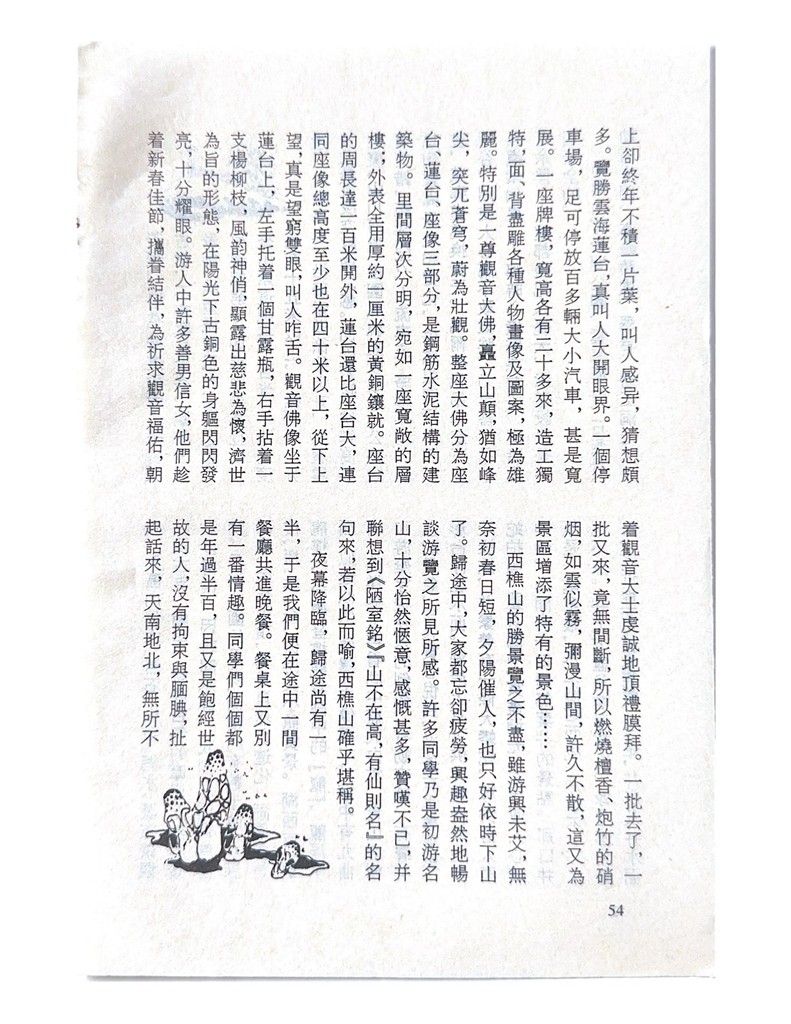 上卻終年不積一片葉，叫人感异，猜想頗
多。覽勝雲海蓮台，真叫人大開眼界。一個停
車場，足可停放百多輛大小汽車，甚是寬
展。一座牌樓，寬高各有二十多來，造工獨
特，面、背盡雕各種人物畫像及圖案，極為雄
麗。特別是一尊觀音大佛，矗立山顛，猶如峰
尖，突兀蒼穹，蔚為壯觀。整座大佛分為座
台、蓮台、座像三部分，是鋼筋水泥結構的建
築物。里間層次分明，宛如一座寬敞的層
樓；外表全用厚約一厘米的黃銅鑲就。座台
的周長達一百米開外，蓮台還比座台大，連
同座像總高度至少也在四十米以上，從下上
望，真是望窮雙眼，叫人咋舌。觀音佛像坐于
蓮台上，左手托着一個甘露瓶，右手拈着一
支楊柳枝，風韵神俏，顯露出慈悲為懷，濟世
為旨的形態，在陽光下古銅色的身軀閃閃發
亮，十分耀眼。游人中許多善男信女，他們趁
着新春佳節，攜眷結伴，為祈求觀音福佑，朝
着觀音大士虔誠地頂禮膜拜。一批去了，一
批又來，竟無間斷，所以燃燒檀香、炮竹的硝
烟，如雲似霧，彌漫山間，許久不散，這又為
景區增添了特有的景色……
西樵山的勝景覽之不盡，雖游興未艾，無
奈初春日短，夕陽催人，也只好依時下山
了。歸途中，大家都忘卻疲勞，興趣盎然地暢
談游覽之所見所感。許多同學乃是初游名
山，十分怡然愜意，感慨甚多，贊嘆不已，并
聯想到《陋室銘》『山不在高，有仙則名』的名
句來，若以此而喻，西樵山確乎堪稱。
夜幕降臨，歸途尚有一
半，于是我們便在途中一間
餐廳共進晚餐。餐桌上又別
有一番情趣。同學們個個都
是年過半百，且又是飽經世
故的人，沒有拘束與腼腆，扯
起話來，天南地北，無所不
54